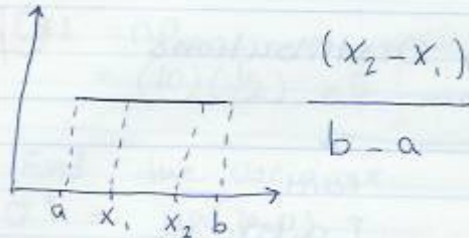 (x₂ - x₁)
b - a
a x₁ x₂ b